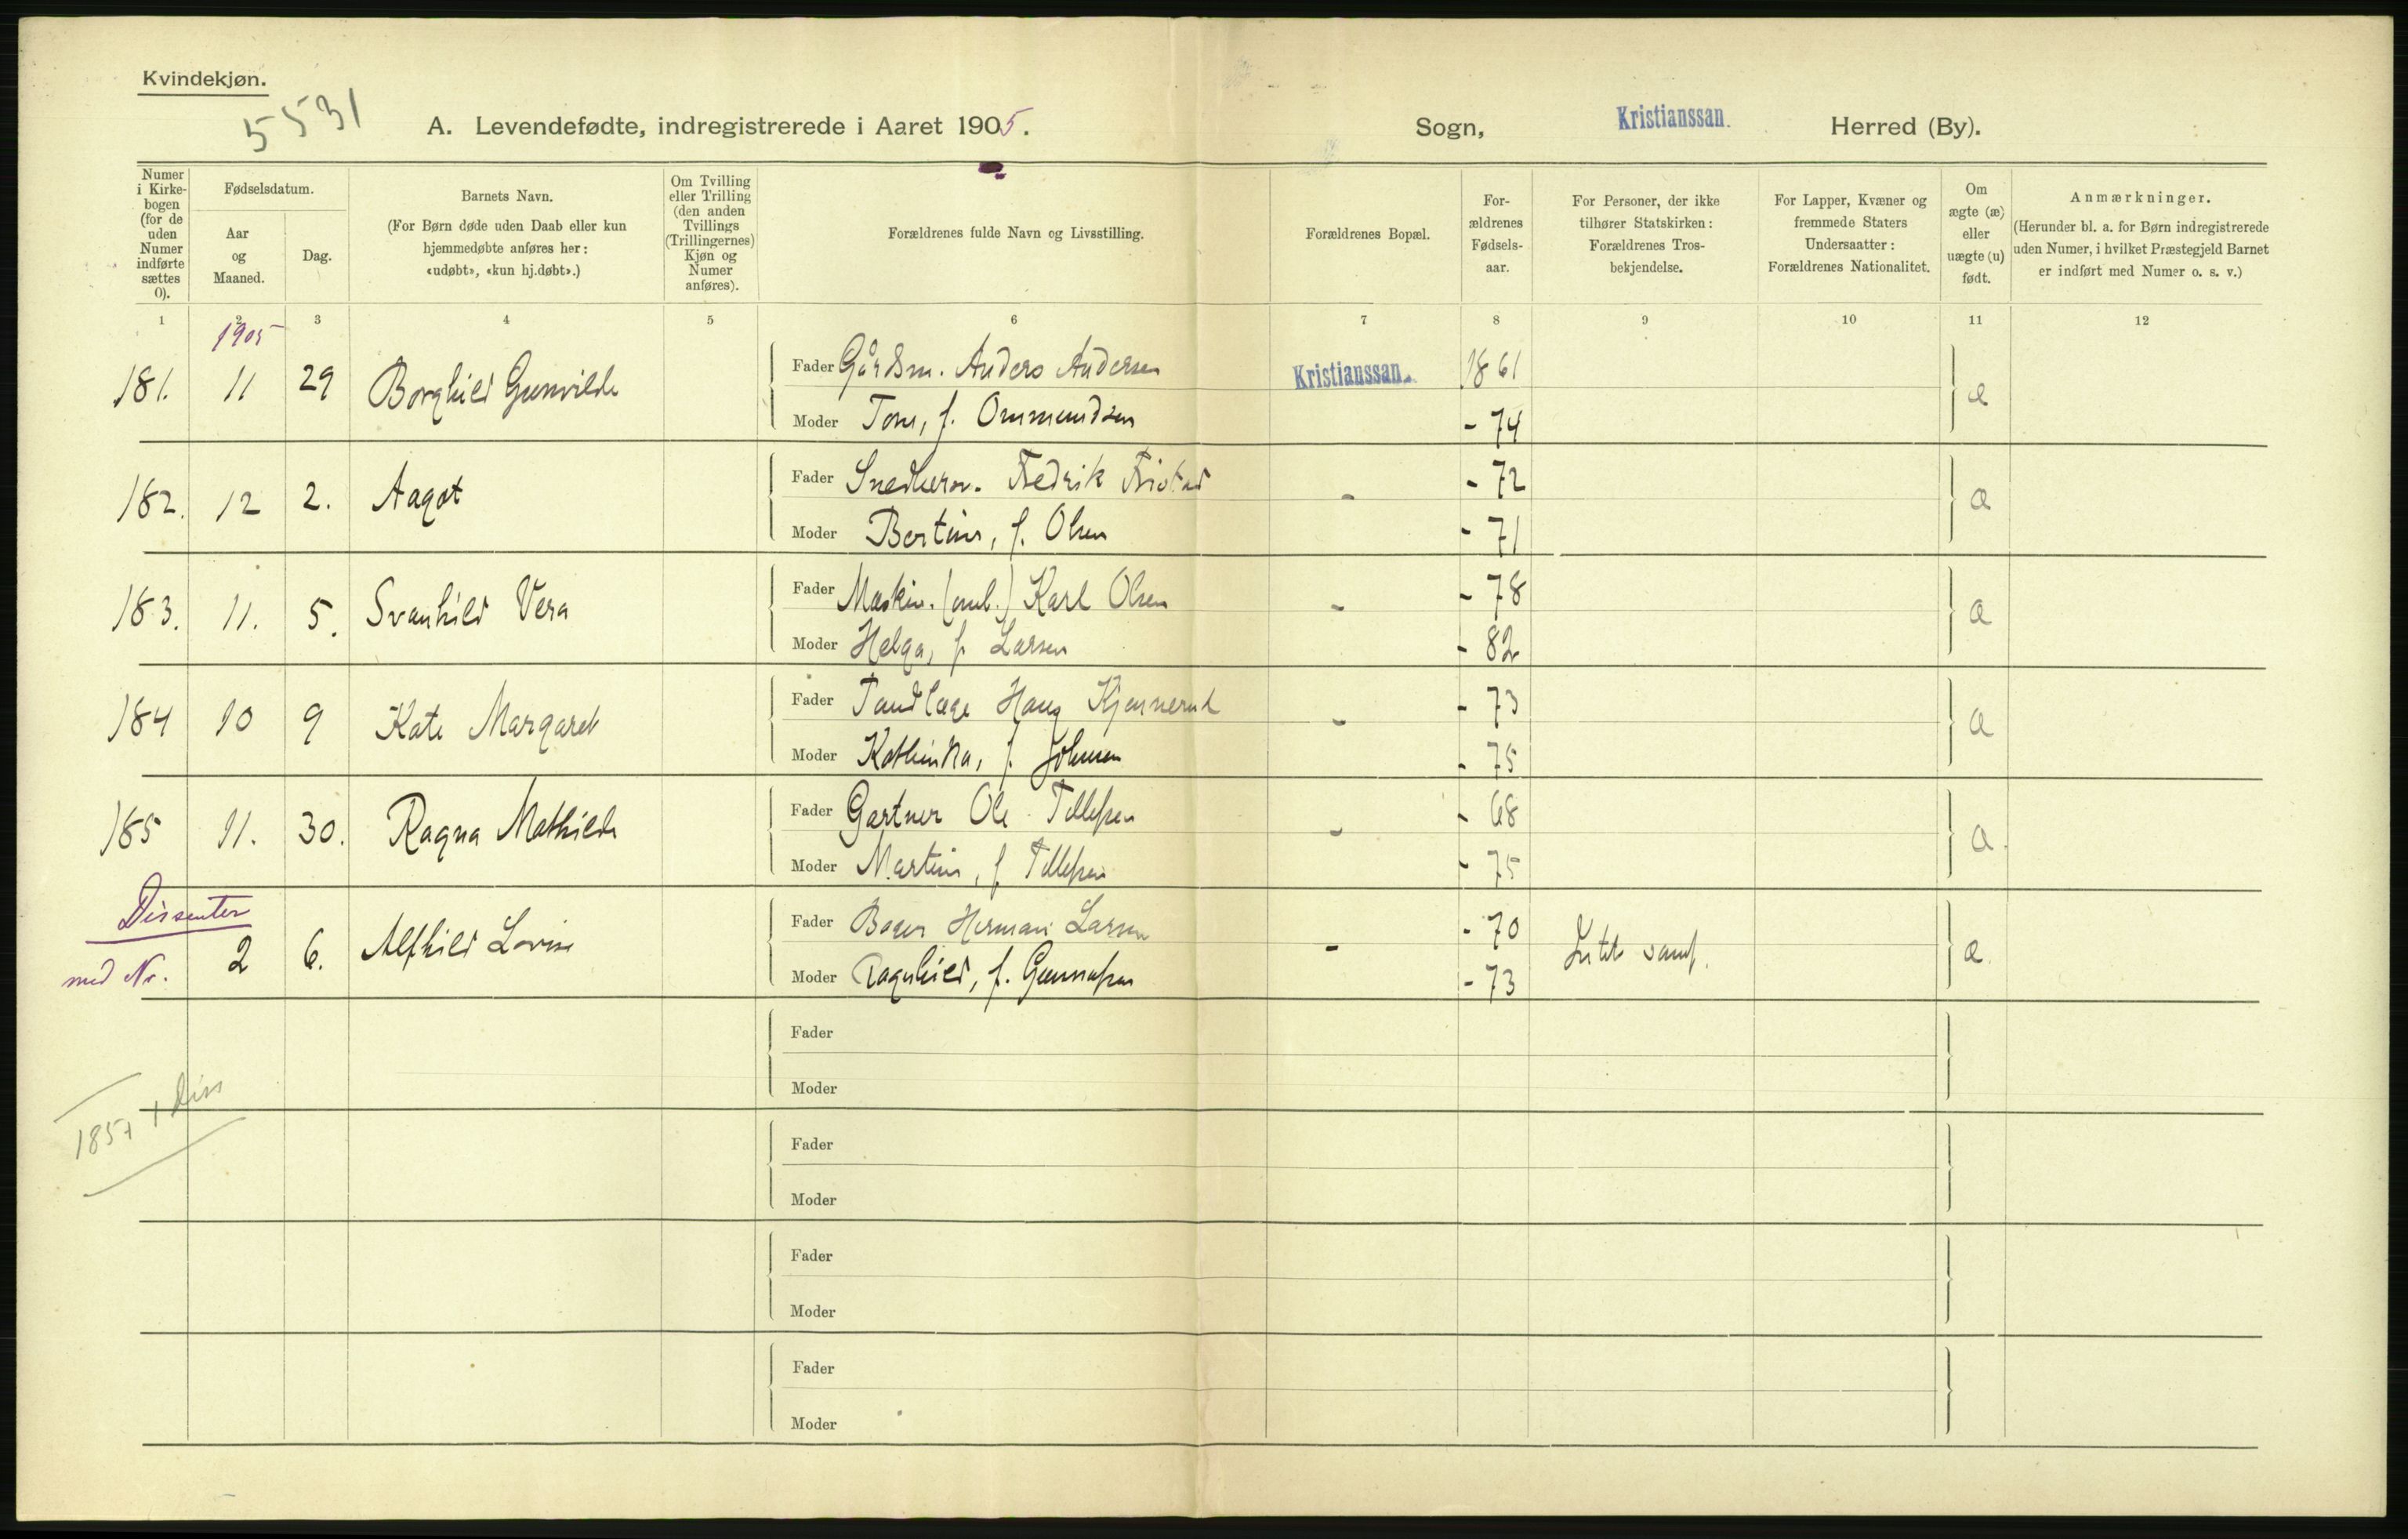 Kvindekjøn.
5531
A. Levendefødte, indregistrerede i Aaret 1905. Sogn, Kristianssan. Herred (By).
Numer i Kirkebogen (for de uden Numer indførte sættes 0).
Fødselsdatum.
Aar og Maaned.
Dag.
Barnets Navn.
(For Børn døde uden Daab eller kun hjemmedøbte anføres her: «udøbt», «kun hj.døbt».)
Om Tvilling eller Trilling (den anden Tvillings (Trillingernes) Kjøn og Numer anføres).
Forældrenes fulde Navn og Livsstilling.
Forældrenes Bopæl.
Forældrenes Fødselsaar.
For Personer, der ikke tilhører Statskirken: Forældrenes Trosbekjendelse.
For Lapper, Kvæner og fremmede Staters Undersaatter: Forældrenes Nationalitet.
Om ægte (æ) eller uægte (u) født.
Anmærkninger.
(Herunder bl. a. for Børn indregistrerede uden Numer, i hvilket Præstegjeld Barnet er indført med Numer o. s. v.)
1 2 3 4 5 6 7 8 9 10 11 12
1905
181. 11 29 Borghild Gunvilde Fader Gårdsm. Anders Andersen Kristianssan. 1861 æ
Moder Tone, f. Ommundsen - 74
182. 12 2. Aagot Fader Fredrik - - 72 æ
Moder Bertine, f. Olsen - 71
183. 11. 5. Svanhild Vera Fader Maskin. Karl Olsen - - 78 æ
Moder Helga, f. Larsen - 82
184 10 9 Kate Margaret Fader Tandlæge - - 73 æ
Moder Kathinka, f. Johnsen - 75
185 11. 30. Ragna Mathilde Fader Gartner Ole Tellefsen - - 68 æ.
Moder Martine, f. Tellefsen - 75
Dissenter
med Nr. 2 6. Alfhild Lovise Fader Bager Herman Larsen - - 70 æ.
Moder Ragnhild, f. Gunnufsen - 73
Fader
Moder
185 + 1 Diss
Fader
Moder
Fader
Moder
Fader
Moder